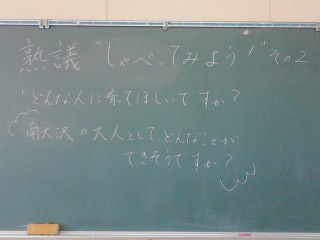 熟議 "しゃべってみよう!" その2
「どんな人に育ってほしいですか?
南大沢の大人としてどんなことが
できそうですか?